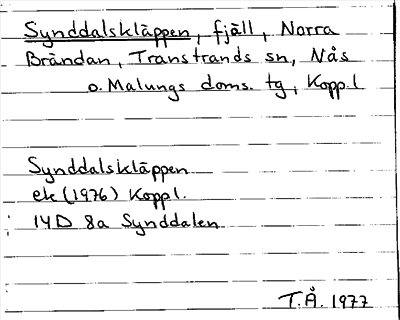 Synddalskläppen, fjäll, Norra
Brändan, Transtrands sn, Nås
o. Malungs doms. tg, Koppl
Synddalskläppen
ek (1976) Koppl.
14D 8a Synddalen
T.Å. 1977